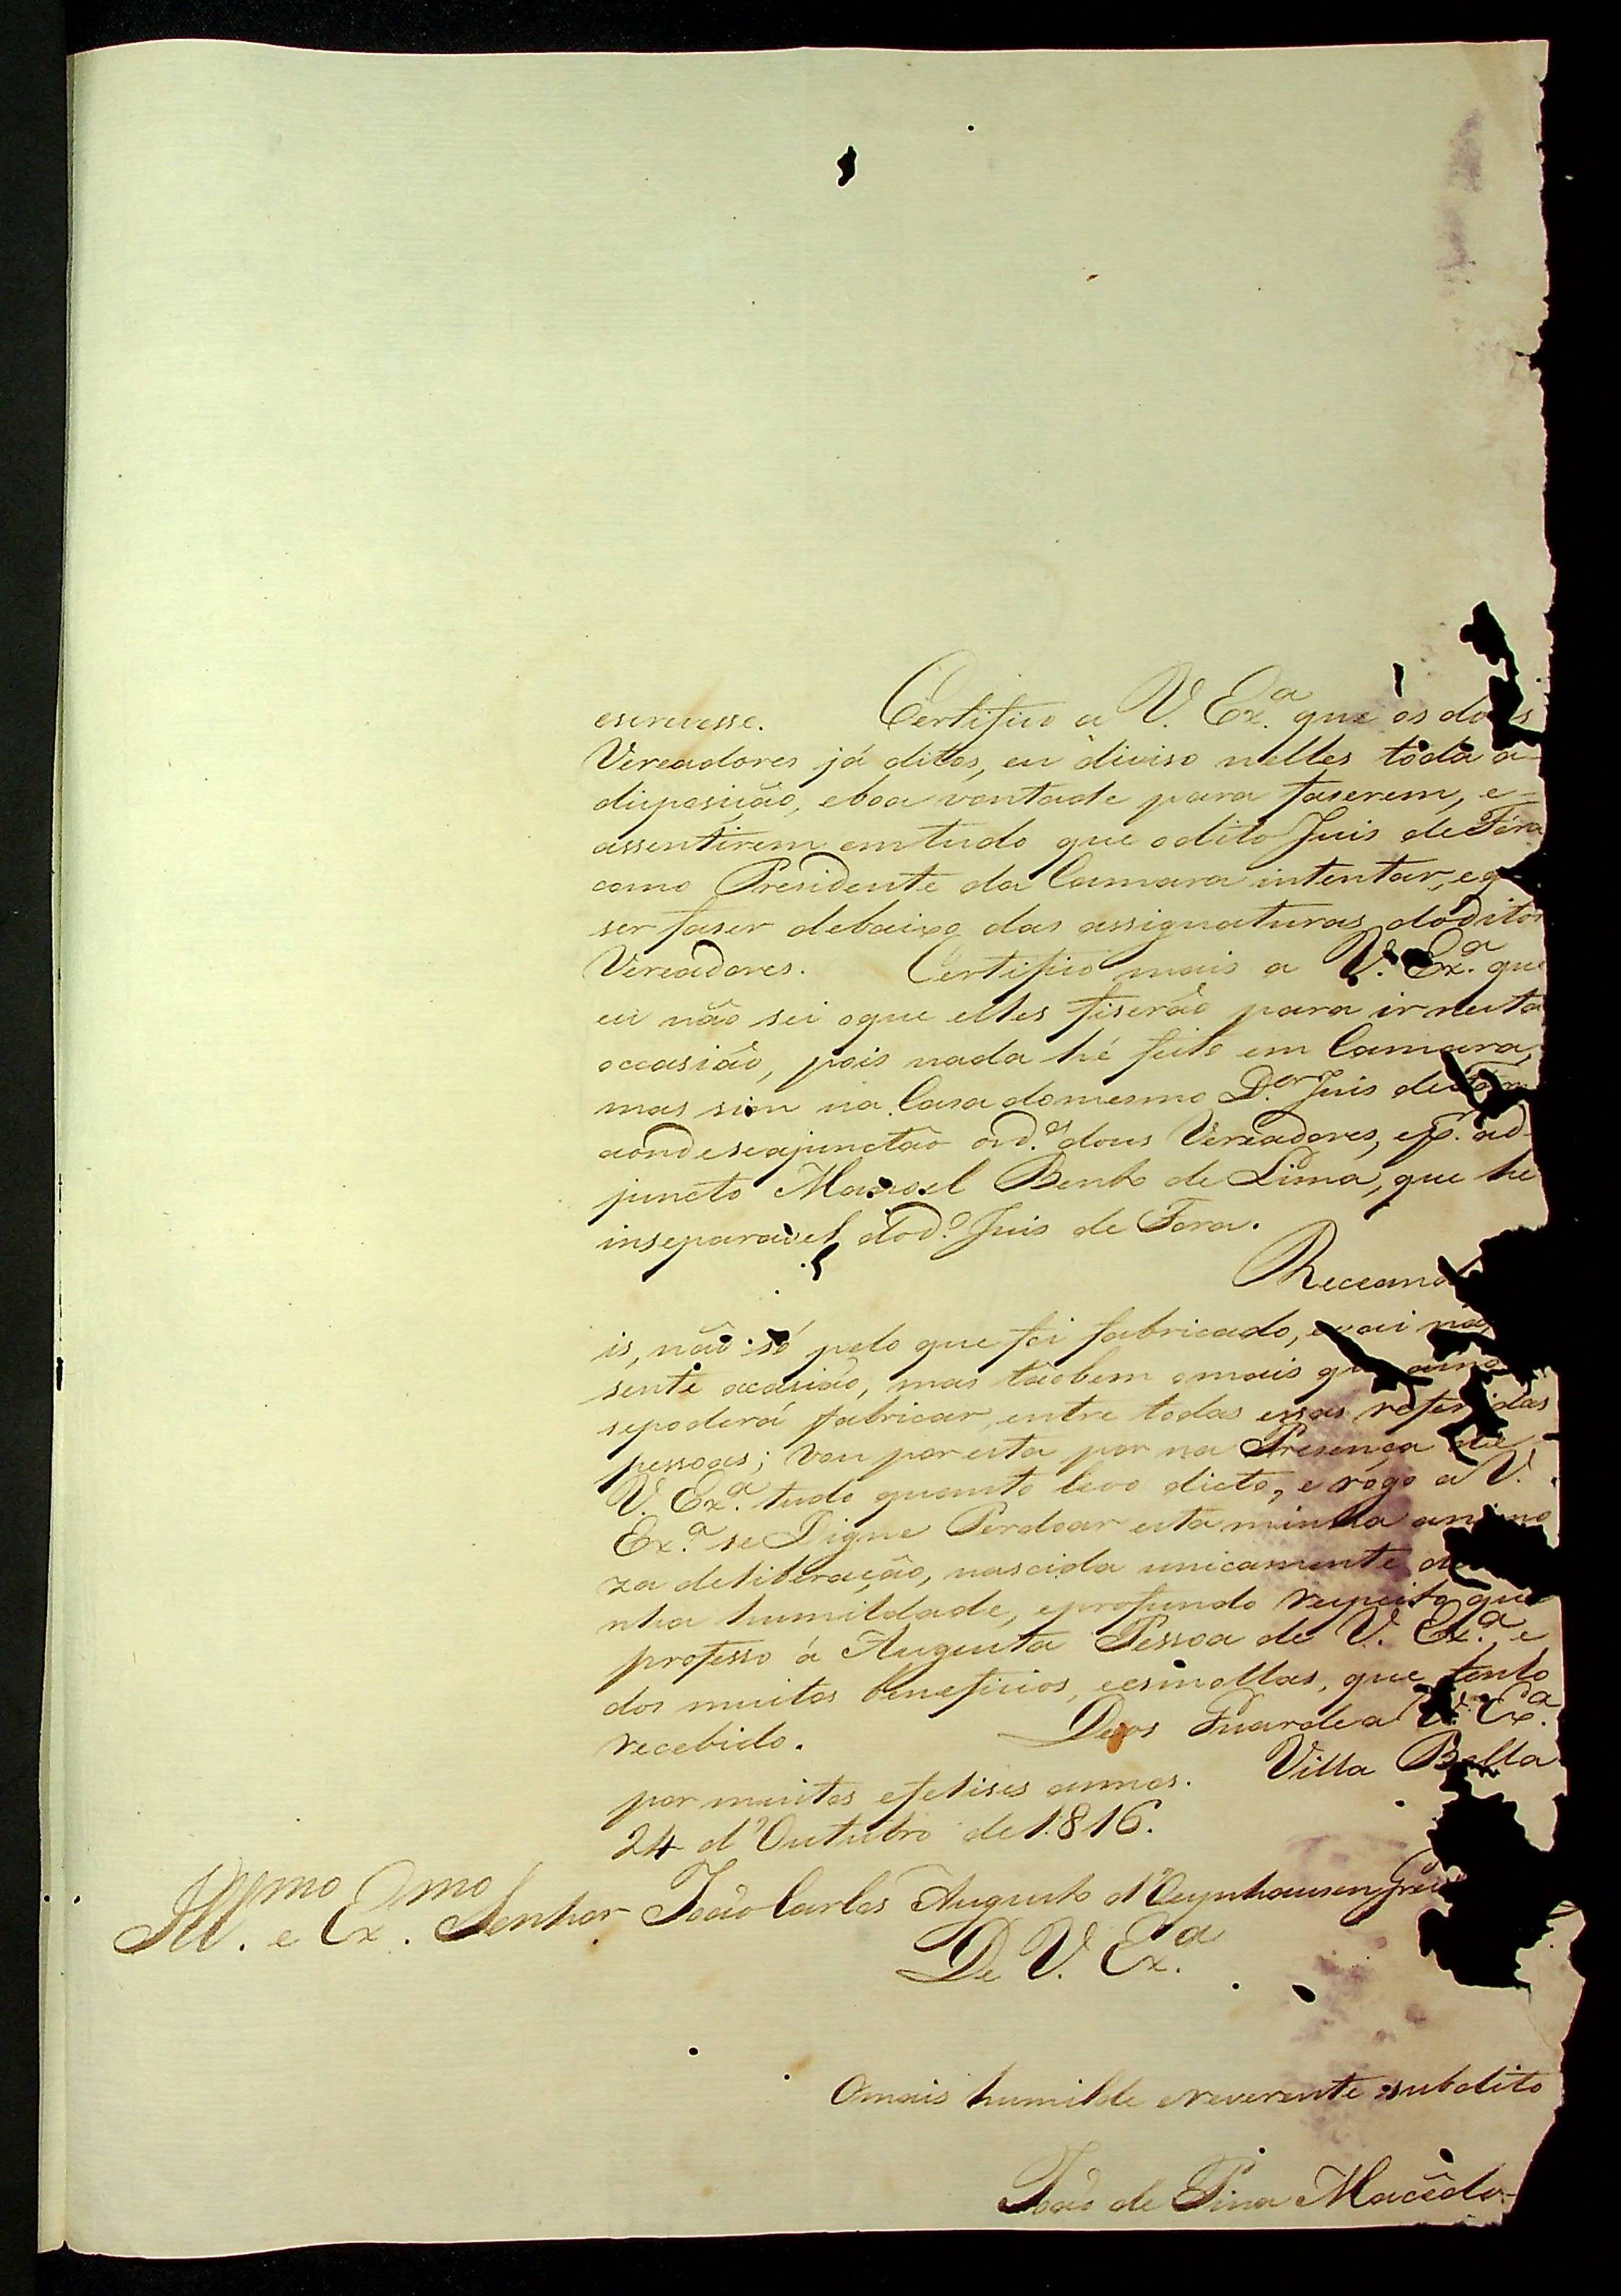 escrevesse. Certifico a V. Ex.ª que os dois
Vereadores já ditos, eu diviso nelles toda a
disposição, eboa vontade para faserem, e=
assentirem emtudo que odito Juis de Fóra
como Presidente da Camara intentar, e
ser faser debaixo das assignaturas doditos
Vereadores. Certifico mais a V. Ex.ª que
eu não sei oque elles fiserão para ir nesta
occasião, pois nada hé feito em Camara,
mas sim na Casa domesmo D.or Juis de
aondeseajunctão osd.os dous Vereadores, ep. ad-
juncto Manoel Bento de Lima, que he
inseparavel dod.º Juis de Fora.
Recean
is, não só pelo que foi fabricado, evai na
sente occasião, mas tãobem omais que ainda
sepoderá fabricar, entre todas essas referidas
pessoas; vou por esta por na Presença de
V. Ex.ª tudo quanto levo dicto, e rogo a V.
Ex.ª se Digne Perdoar esta minha animo
za deliberação, nascida unicamente
nha humildade, eprofundo respeito que
professo á Augusta Pessoa de V. Ex.ª, e
dos muitos beneficios, eesmollas, que tenho
recebido. Deos Guardea V. Ex.ª
por muitos efelises annos. Villa Bella
24 d'Outubro de 1816.
Ill.mo e Ex.mo Senhor João Carlos Augusto d'Oeynhausen
De V. Ex.ª
Omais humilde ereverente subdito
João de Pina Macêdo